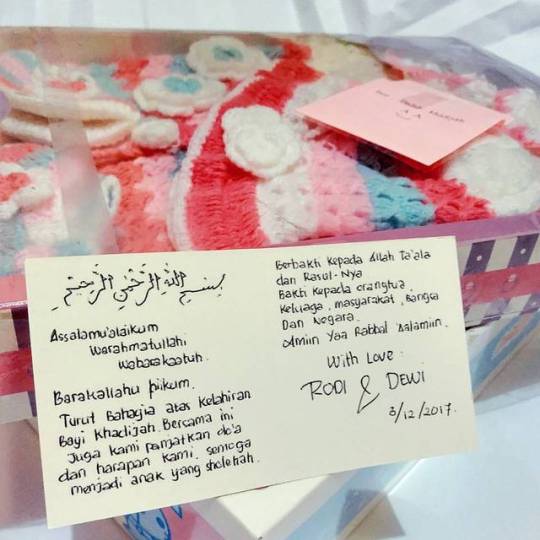 for
Khadijah
^^
بِسْمِ اللَّهِ الرَّحْمَنِ الرَّحِيمِ
Assalamu'alaikum
Warahmatullahi
Wabarakaatuh.
Barakallahu fiikum.
Turut Bahagia atas Kelahiran
Bayi Khadijah. Bersama ini
Juga kami panjatkan do'a
dan harapan kami. semoga
menjadi anak yang sholehah.
Berbakti kepada Allah Ta'ala
dan Rasul-Nya
Bakti kepada orangtua,
Keluaga, masyarakat, Bangsa
Dan Negara.
Amiin Yaa Rabbal 'Aalamiin.
With Love :
RODI & DEWI
3/12/2017.